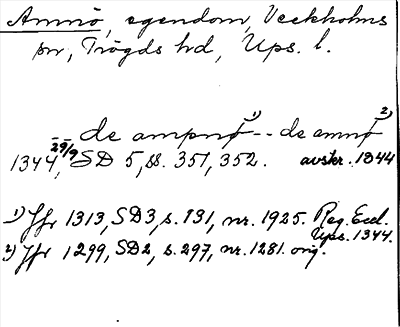 Ammö, egendom, Veckholms
sn, Trögds hd, Ups. l.
-- de ampnø 1) -- de amnø 2)
1344 29/9, SD 5, ss. 351, 352. avskr. 1344
1) Jfr 1313, SD3, s. 131, nr. 1925. Reg. Eccl.
Ups. 1344.
2) Jfr 1299, SD2, s. 297, nr. 1281. orig.